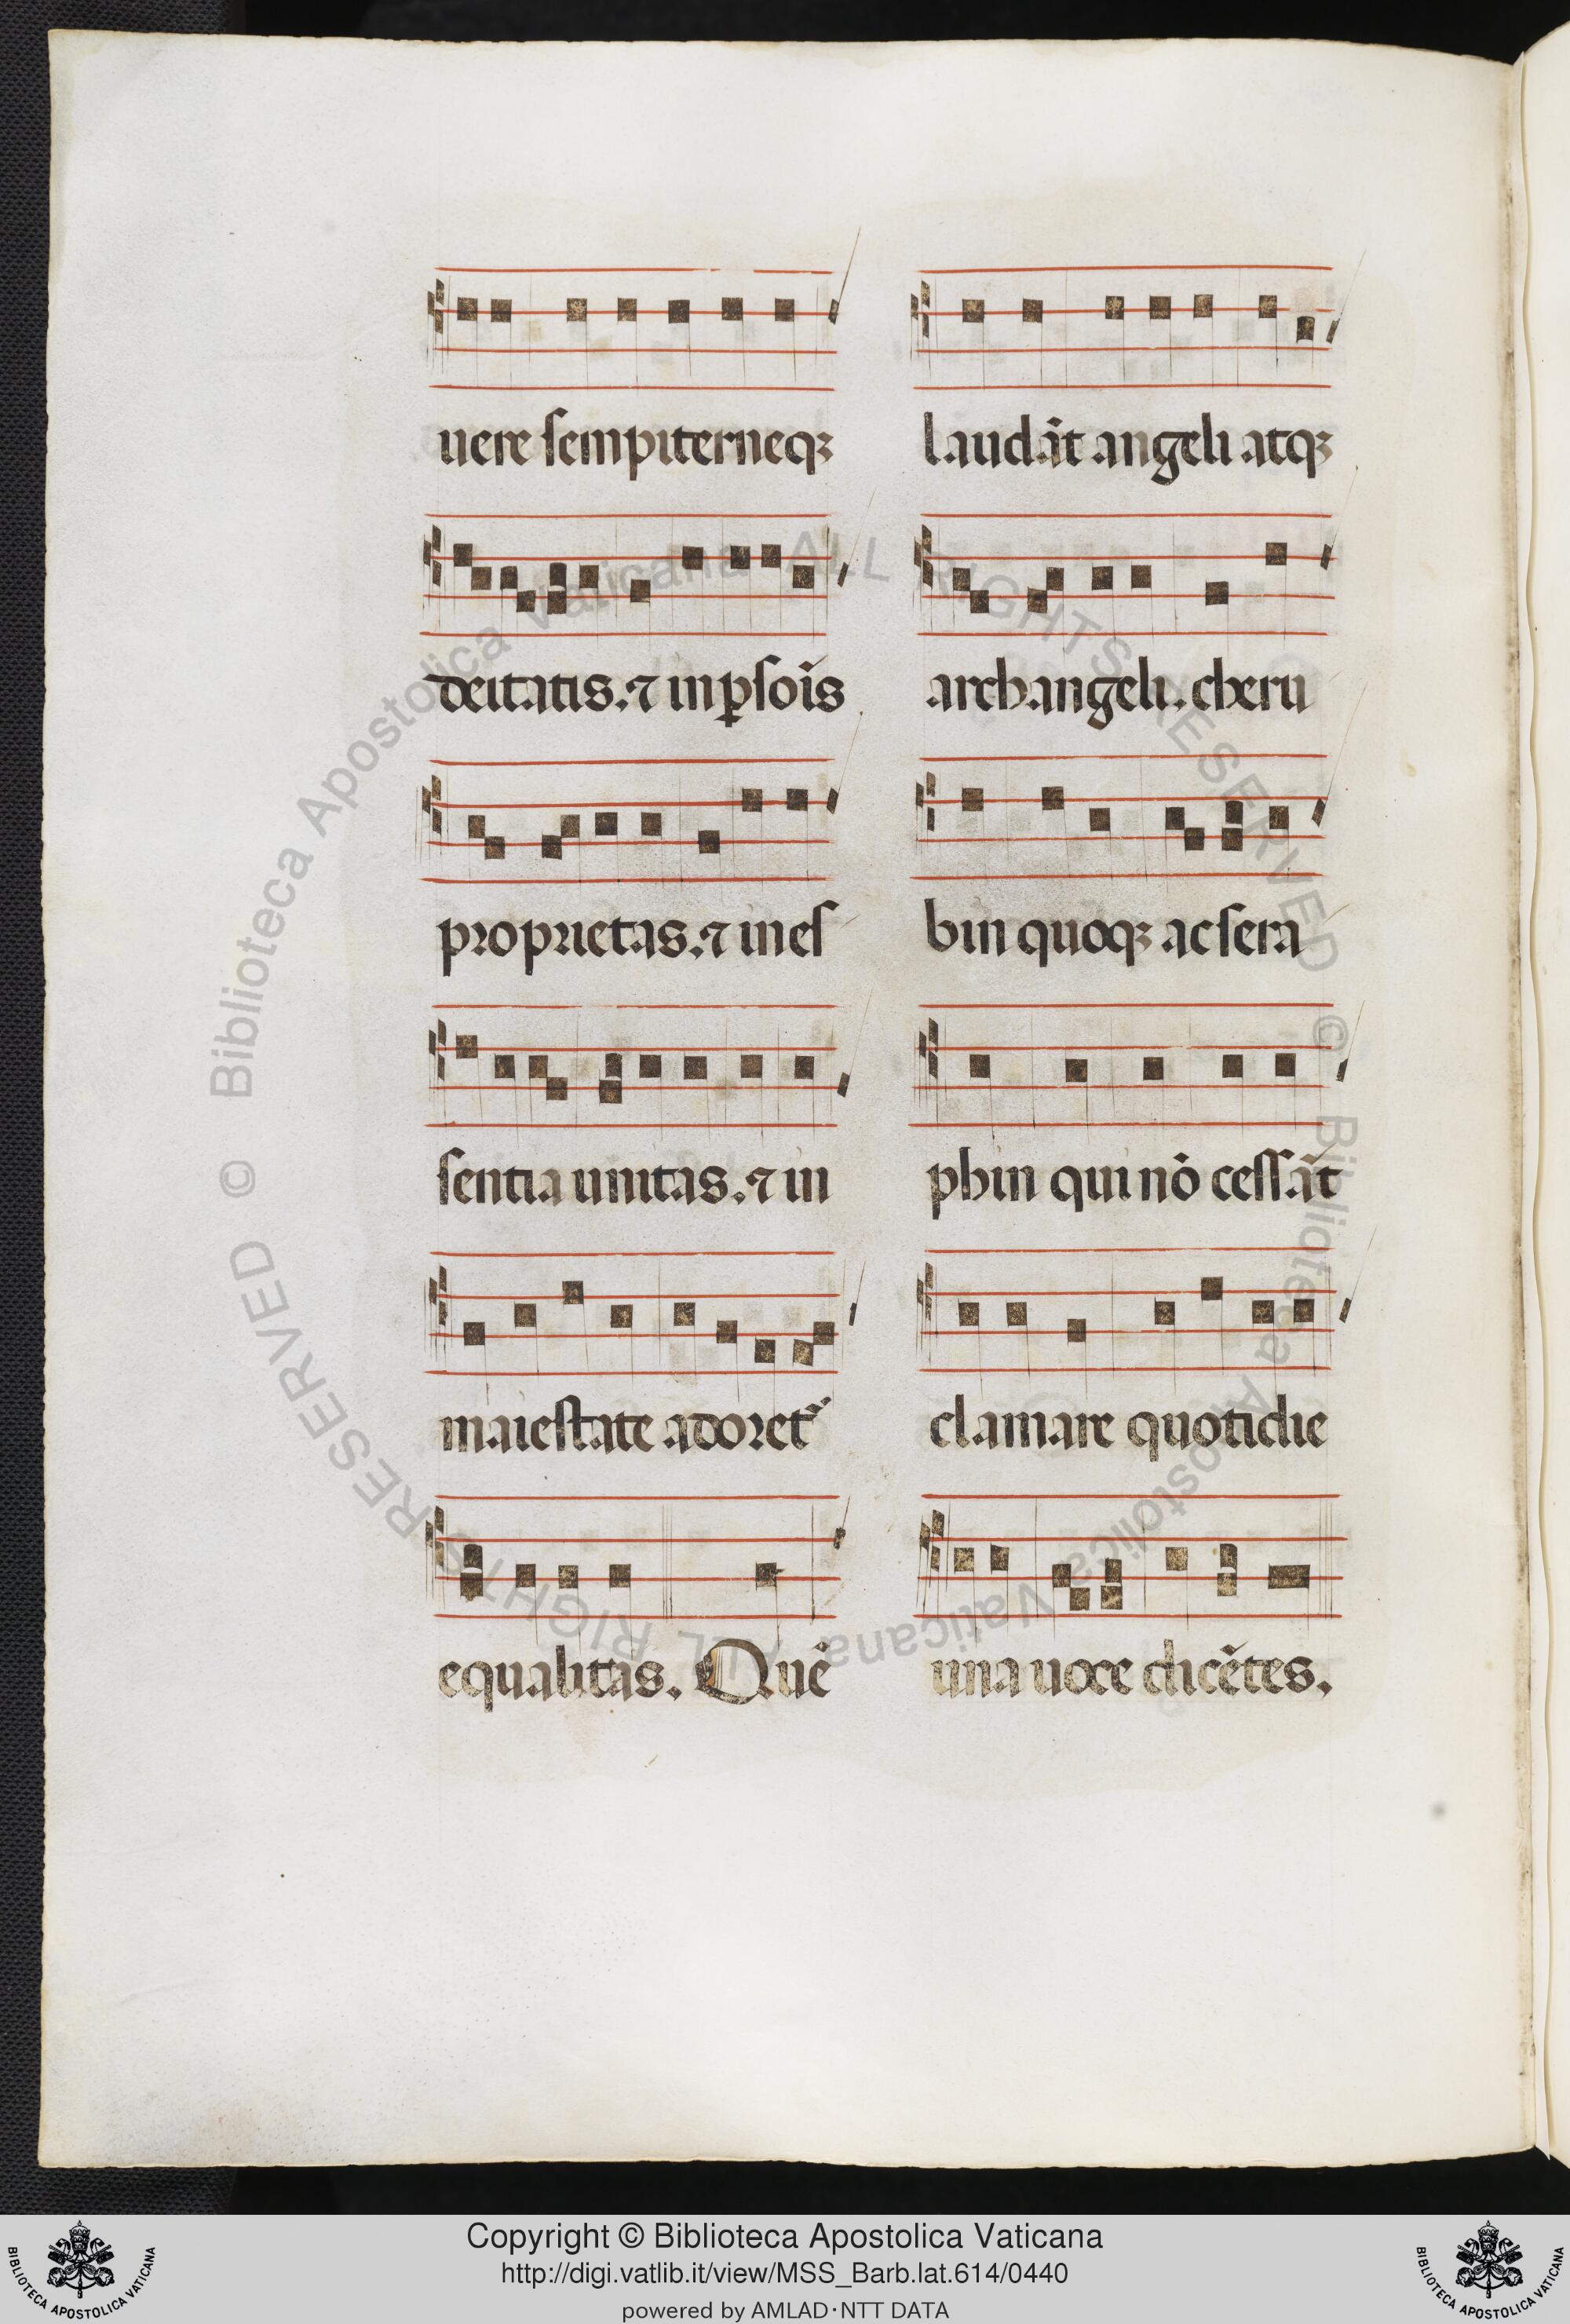 uere sempiterneqꝫ
deitatis.⁊ in ꝑsoĩs
proprietas.⁊ in es
sentia unitas.⁊ in
maiestate adoret᷑
equalitas. Quẽ
laudãt angeli atqꝫ
archangeli. cheru
bin quoqꝫ ac sera
phin qui nõ cessãt
clamare quotidie
una uoce dicẽtes.
© Biblioteca Apostolica Vaticana ALL RIGHTS RESERVED © Biblioteca Apostolica Vaticana ALL RIGHTS RESERVED
BIBLIOTECA APOSTOLICA VATICANA
Copyright © Biblioteca Apostolica Vaticana
http://digi.vatlib.it/view/MSS_Barb.lat.614/0440
powered by AMLAD·NTT DATA
BIBLIOTECA APOSTOLICA VATICANA